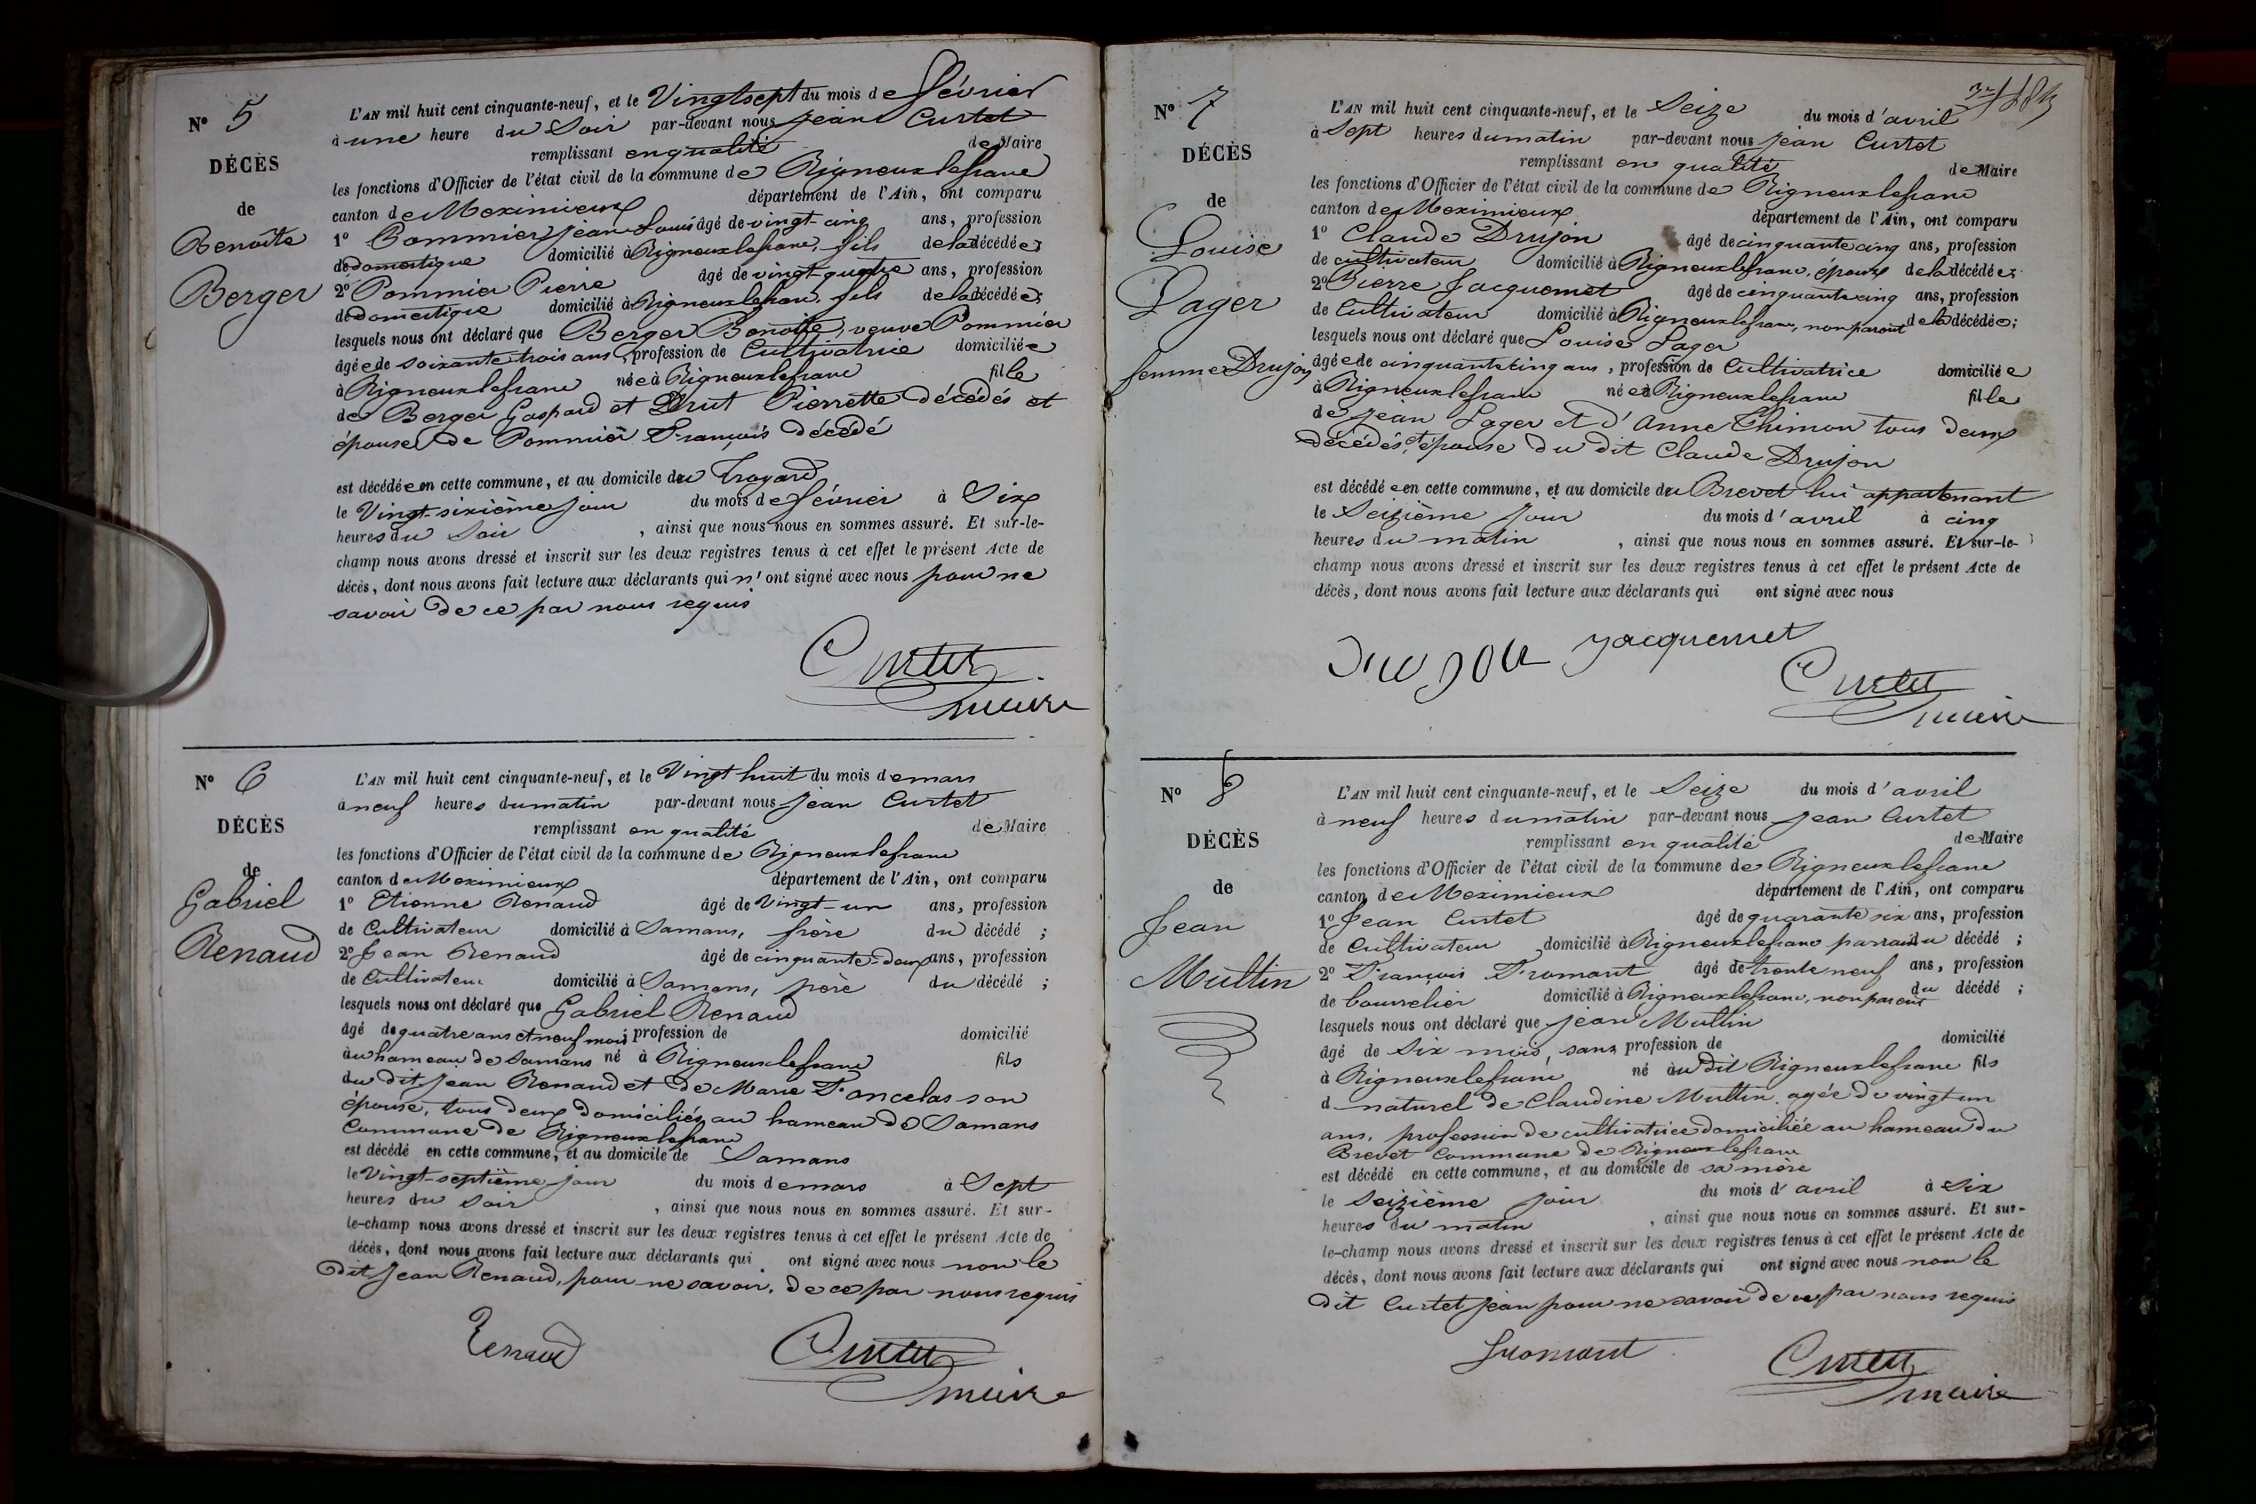 N° 5
DÉCÈS
de
Benoîte
Berger
L'AN mil huit cent cinquante-neuf, et le Vingt sept du mois de février
à une heure du Soir par-devant nous jean Curtet
remplissant en qualité de Maire
les fonctions d'Officier de l'état civil de la commune de Rigneux le franc
canton de Meximieux département de l'Ain, ont comparu
1° Pommier jean Louis âgé de vingt-cinq ans, profession
de domestique domicilié à Rigneux le franc, fils de la décédée;
2° Pommier Pierre âgé de vingt-quatre ans, profession
de domestique domicilié à Rigneux le franc, fils de la décédée;
lesquels nous ont déclaré que Berger Benoite, veuve Pommier
âgée de soixante trois ans, profession de Cultivatrice domiciliée
à Rigneux le franc née à Rigneux le franc fille
de Berger Gaspard et Drut Pierrette décédés et
épouse de Pommier François décédé
est décédée en cette commune, et au domicile du Troyard
le Vingt-sixième jour du mois de février à Six
heures du Soir, ainsi que nous nous en sommes assuré. Et sur-le-
champ nous avons dressé et inscrit sur les deux registres tenus à cet effet le présent Acte de
décès, dont nous avons fait lecture aux déclarants qui n'ont signé avec nous pour ne
savoir de ce par nous requis
Curtet
maire
N° 6
DÉCÈS
de
Gabriel
Renaud
L'AN mil huit cent cinquante-neuf, et le Vingt huit du mois de mars
à neuf heures du matin par-devant nous jean Curtet
remplissant en qualité de Maire
les fonctions d'Officier de l'état civil de la commune de Rigneux le franc
canton de Meximieux département de l'Ain, ont comparu
1° Etienne Renaud âgé de Vingt-un ans, profession
de Cultivateur domicilié à Samans, frère du décédé;
2° Jean Renaud âgé de cinquante-deux ans, profession
de Cultivateur domicilié à Samans, père du décédé;
lesquels nous ont déclaré que Gabriel Renaud
âgé de quatre ans et neuf mois, profession de domicilié
au hameau de Samans né à Rigneux le franc fils
du dit jean Renaud et de Marie Francelas son
épouse, tous deux domiciliés au hameau de Samans
Commune de Rigneux le franc
est décédé en cette commune, et au domicile de Samans
le Vingt-septième jour du mois de mars à Sept
heures du Soir, ainsi que nous nous en sommes assuré. Et sur-
le-champ nous avons dressé et inscrit sur les deux registres tenus à cet effet le présent Acte de
décès, dont nous avons fait lecture aux déclarants qui ont signé avec nous non le
dit jean Renaud, pour ne savoir, de ce par nous requis
Renaud
Curtet
maire
N° 7
DÉCÈS
de
Louise
Lager
femme Drujon
L'AN mil huit cent cinquante-neuf, et le Seize du mois d'avril
à Sept heures du matin par-devant nous jean Curtet
remplissant en qualité de Maire
les fonctions d'Officier de l'état civil de la commune de Rigneux le franc
canton de Meximieux département de l'Ain, ont comparu
1° Claude Drujon âgé de cinquante cinq ans, profession
de cultivateur domicilié à Rigneux le franc, époux de la décédée;
2° Pierre Jacquemet âgé de cinquante cinq ans, profession
de Cultivateur domicilié à Rigneux le franc, non parent de la décédée;
lesquels nous ont déclaré que Louise Lager
âgée de cinquante cinq ans, profession de Cultivatrice domiciliée
à Rigneux le franc née à Rigneux le franc fille
de jean Lager et d'Anne Thimon tous deux
décédés, et épouse du dit Claude Drujon
est décédée en cette commune, et au domicile du Brevet lui appartenant
le Seizième jour du mois d'avril à cinq
heures du matin, ainsi que nous nous en sommes assuré. Et sur-le-
champ nous avons dressé et inscrit sur les deux registres tenus à cet effet le présent Acte de
décès, dont nous avons fait lecture aux déclarants qui ont signé avec nous
Drujon Jacquemet
Curtet
maire
N° 8
DÉCÈS
de
Jean
Multin
L'AN mil huit cent cinquante-neuf, et le Seize du mois d'avril
à neuf heures du matin par-devant nous jean Curtet
remplissant en qualité de Maire
les fonctions d'Officier de l'état civil de la commune de Rigneux le franc
canton de Meximieux département de l'Ain, ont comparu
1° Jean Curtet âgé de quarante six ans, profession
de Cultivateur domicilié à Rigneux le franc parrain du décédé;
2° François Fromont âgé de trente neuf ans, profession
de bourrelier domicilié à Rigneux le franc, non parent du décédé;
lesquels nous ont déclaré que jean Multin
âgé de Six mois, sans profession de domicilié
à Rigneux le franc né au dit Rigneux le franc fils
d naturel de Claudine Multin, agée de vingt un
ans, profession de cultivatrice domiciliée au hameau du
Brevet Commune de Rigneux le franc
est décédé en cette commune, et au domicile de sa mère
le seizième jour du mois d'avril à six
heures du matin, ainsi que nous nous en sommes assuré. Et sur-
le-champ nous avons dressé et inscrit sur les deux registres tenus à cet effet le présent Acte de
décès, dont nous avons fait lecture aux déclarants qui ont signé avec nous non le
dit Curtet jean pour ne savoir de ce par nous requis
Fromont
Curtet
maire